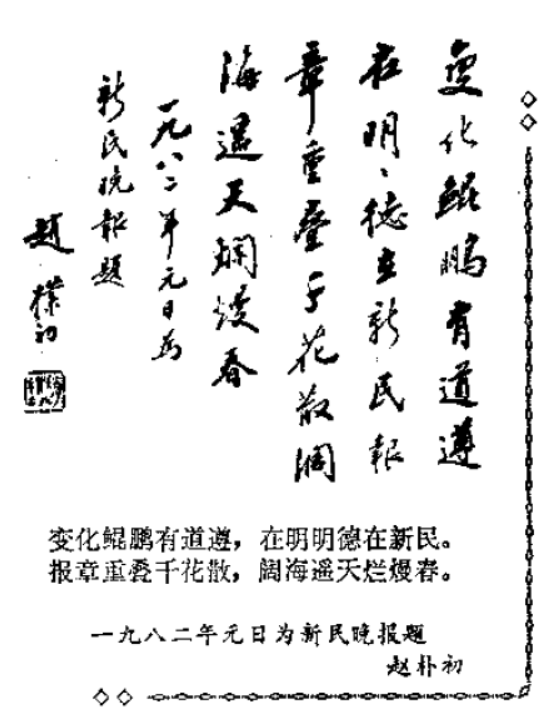 变化鲲鹏有道遵
在明々德在新民報
章重疊千花散濶
海遥天爛熳春
一九八二年元日为
新民晚報題
趙樸初
变化鲲鹏有道遵，在明明德在新民。
报章重叠千花散，阔海遥天烂熳春。
一九八二年元日为新民晚报题
赵朴初